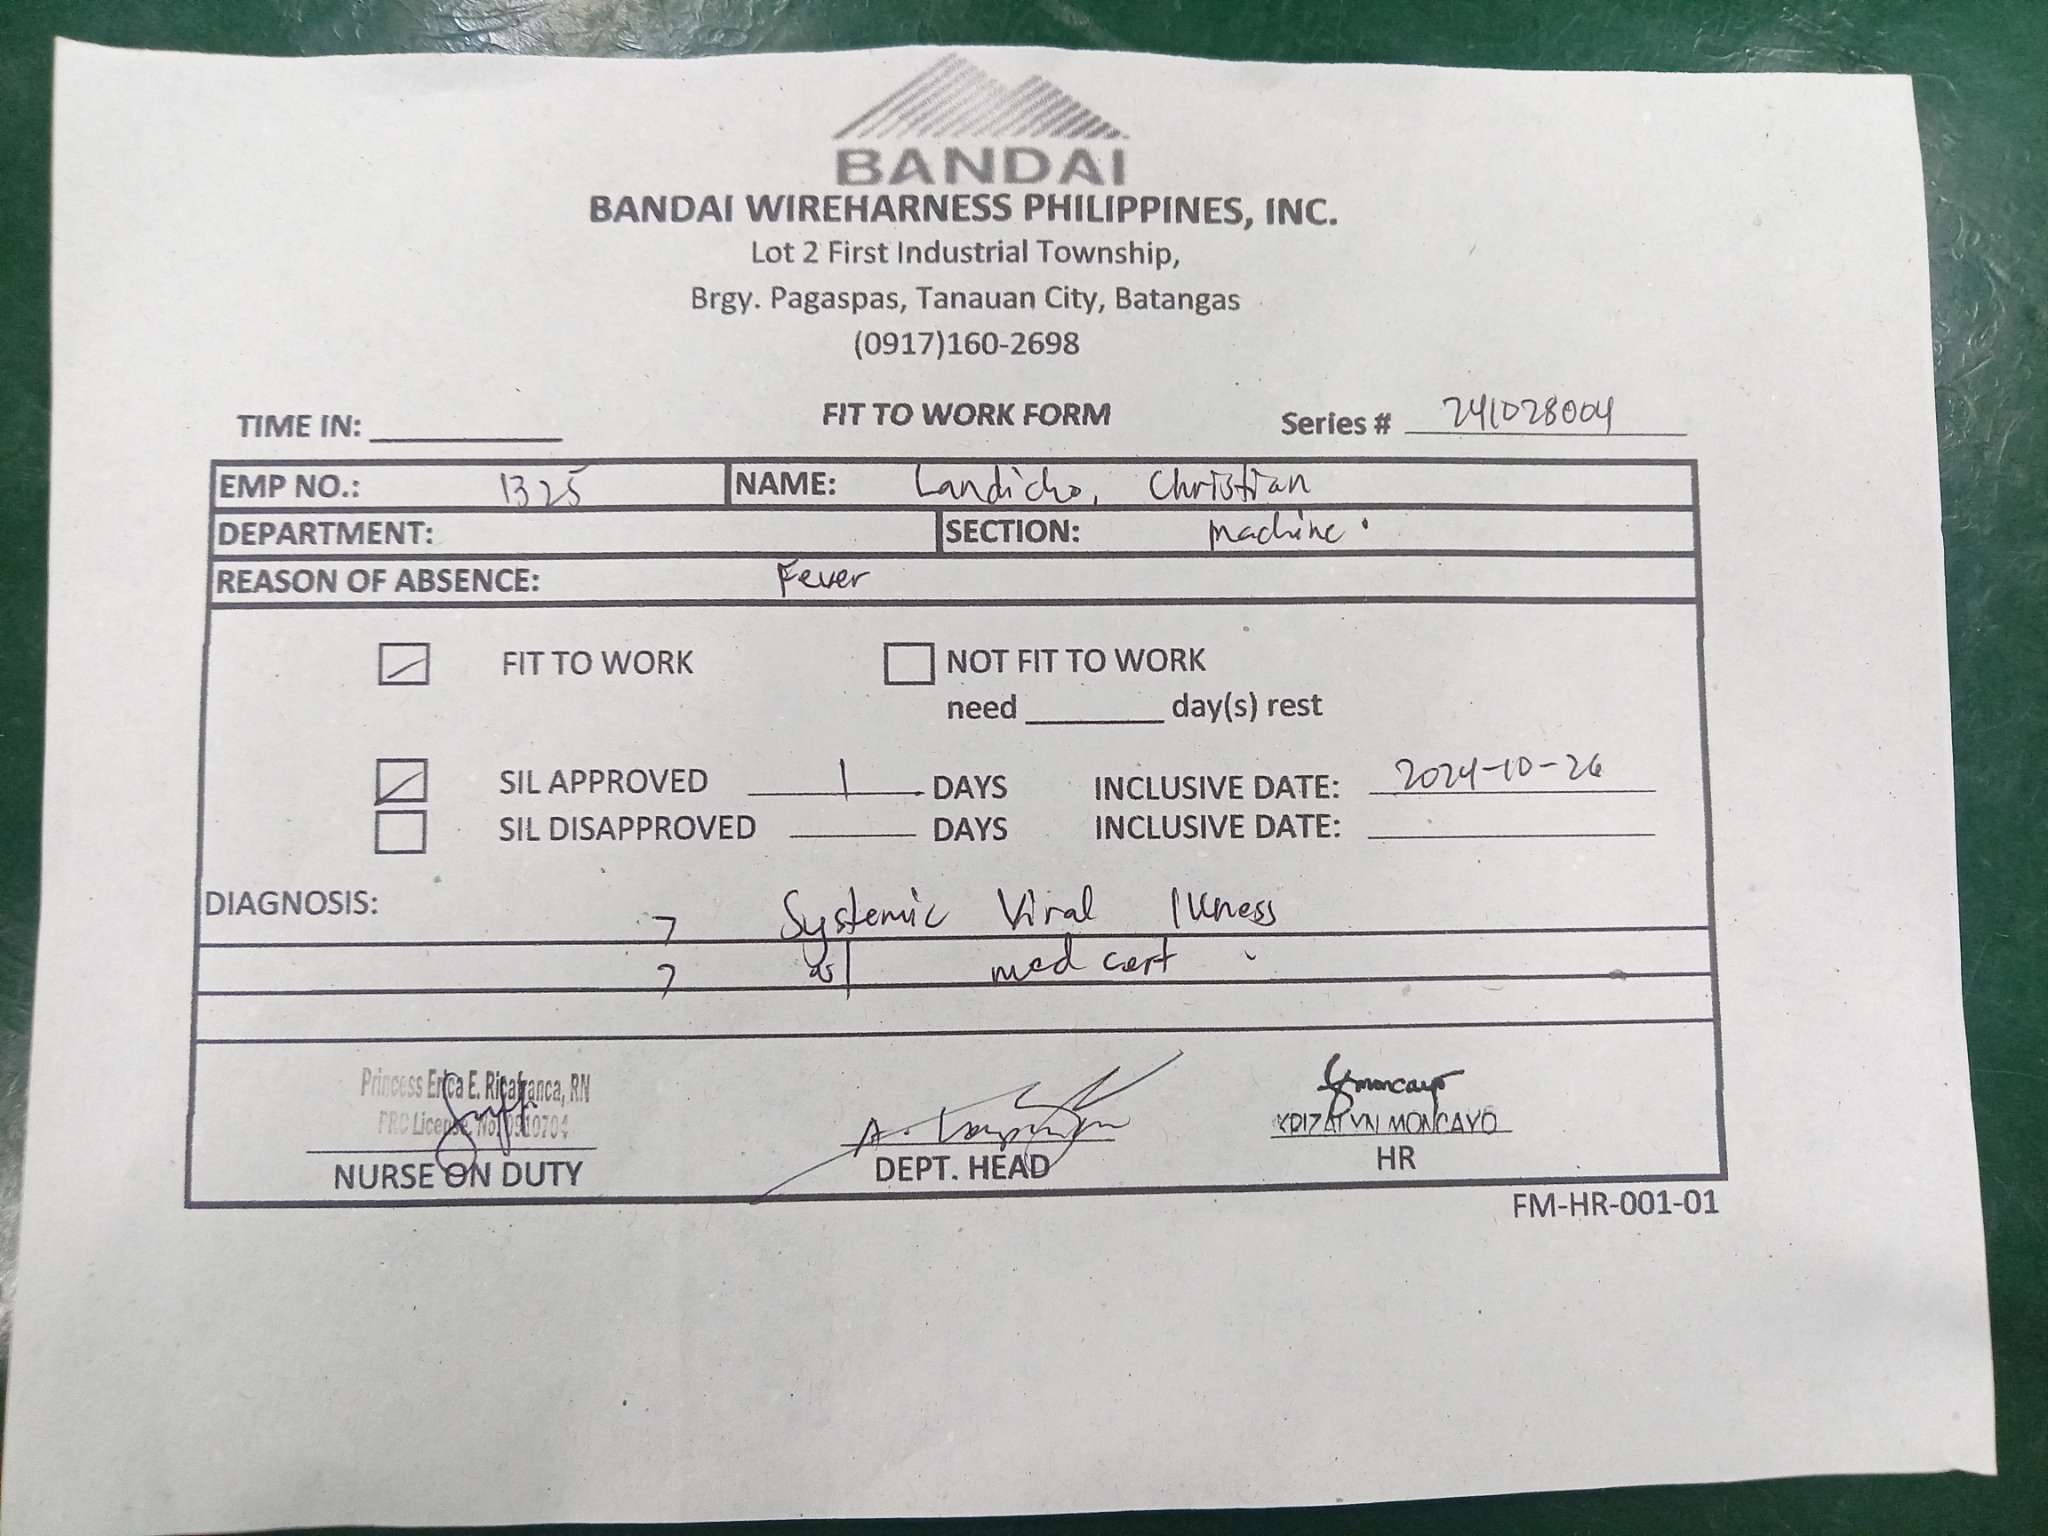 BANDAI
BANDAI WIREHARNESS PHILIPPINES, INC.
Lot 2 First Industrial Township,
Brgy. Pagaspas, Tanauan City, Batangas
(0917)160-2698
TIME IN: FIT TO WORK FORM Series # 241028004
EMP NO.: 1325 NAME: Landicho, Christian
DEPARTMENT: SECTION: Machine.
REASON OF ABSENCE: Fever
FIT TO WORK NOT FIT TO WORK
need day(s) rest
SIL APPROVED 1 DAYS INCLUSIVE DATE: 2024-10-26
SIL DISAPPROVED DAYS INCLUSIVE DATE:
DIAGNOSIS: Systemic Viral Illness
med cert
Princess Erica E. Ricafranca, RN
PRC License No. KRIZALYN MONCAYO
NURSE ON DUTY DEPT. HEAD HR
FM-HR-001-01